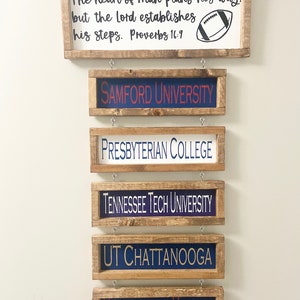 The heart of man plans his way,
but the Lord establishes
his steps. Proverbs 16:9
SAMFORD UNIVERSITY
PRESBYTERIAN COLLEGE
TENNESSEE TECH UNIVERSITY
UT CHATTANOOGA